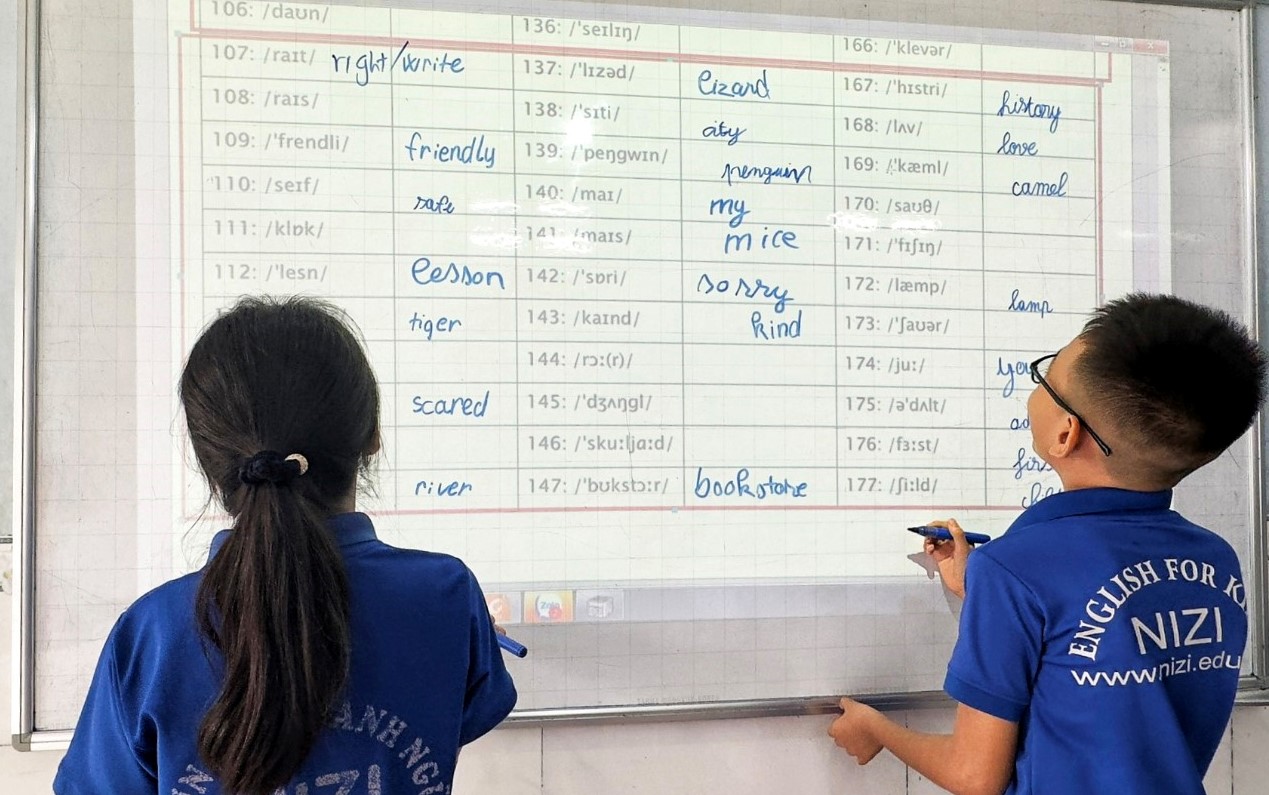 106: /daʊn/ 136: /ˈseɪlɪŋ/ 166: /ˈklevər/
107: /raɪt/ right/write 137: /ˈlɪzəd/ lizard 167: /ˈhɪstri/ history
108: /raɪs/ 138: /ˈsɪti/ city 168: /lʌv/ love
109: /ˈfrendli/ friendly 139: /ˈpeŋgwɪn/ penguin 169: /ˈkæml/ camel
110: /seɪf/ safe 140: /maɪ/ my 170: /saʊθ/
111: /klɒk/ 141: /maɪs/ mice 171: /ˈfɪʃɪŋ/
112: /ˈlesn/ lesson 142: /ˈsɒri/ sorry 172: /læmp/ lamp
tiger 143: /kaɪnd/ kind 173: /ˈʃaʊər/
144: /rɔː(r)/ 174: /juː/ you
scared 145: /ˈdʒʌŋgl/ 175: /əˈdʌlt/ ad
146: /ˈskuːljɑːd/ 176: /fɜːst/ firs
river 147: /ˈbʊkstɔːr/ bookstore 177: /ʃiːld/
Zalo
ENGLISH FOR KI
NIZI
www.nizi.edu
ANH NG
NIZI